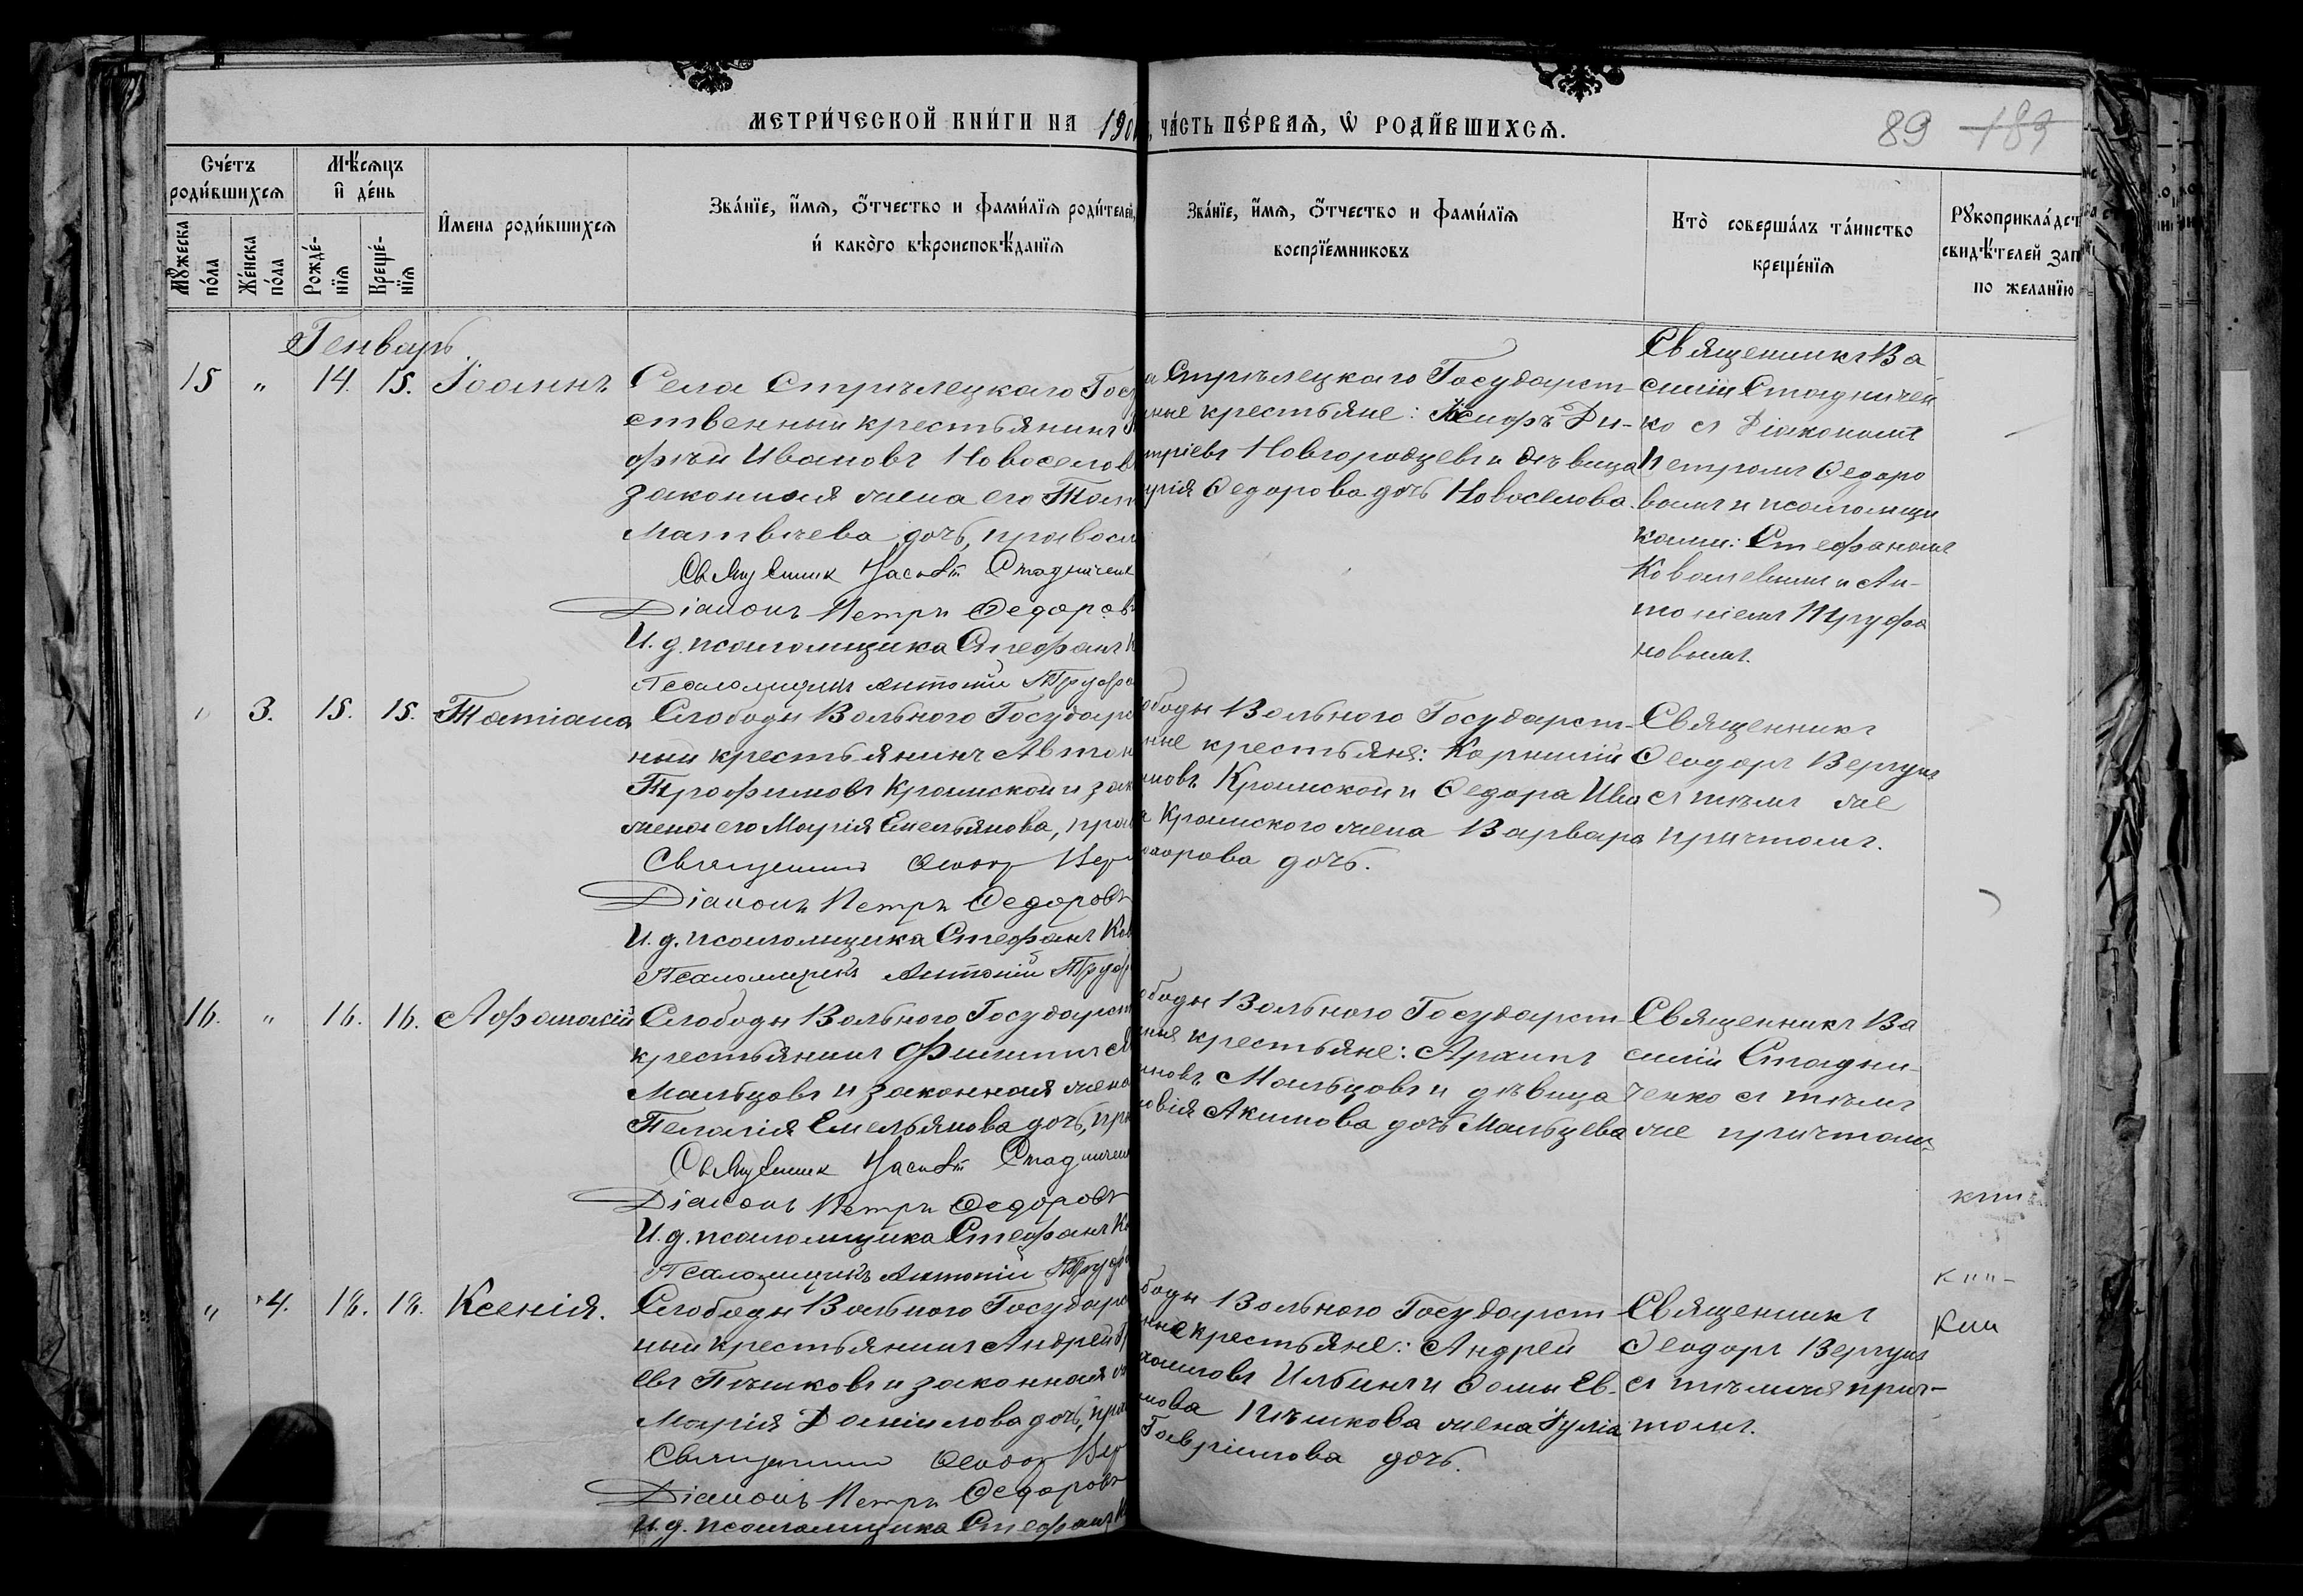 МЕТРИ́ЧЕСКОЙ КНИ́ГИ НА 190
, ЧА́СТЬ ПЕ́РВАЯ, Ѡ РОДИ́ВШИХСЯ.
89 189
Сче́тъ роди́вшихся
Мѣ́сяцъ и҆ де́нь
И҆мена роди́вшихся
Зва́нїе, и҆́мя, ѻ҆́тчество и фами́лїя роди́телей,
и҆ како́гѡ вѣроисповѣ́данїя
Мꙋжеска по́ла
Же́нска по́ла
Рожде́-нїя
Креще́-нїя
Зва́нїе, и҆́мя, ѻ҆́тчество и фами́лїя
воспрїе́мниковъ
Кто̀ соверша́лъ та́инство
креще́нїя
Рꙋкоприкла́дст
свидѣ́телей зап
по желанїю
Генварь.
15 " 14. 15. Іоаннъ
Села Стрѣлецкаго Гос
ственный крестьянинъ
фѣй Ивановъ Новоселов
законная жена его Тат
Матвѣева дочь, правосл
Священник Васил Стадничен
Діаконъ Петръ Федоровъ
И. д. псаломщика Стефанъ К
Псаломщикъ Антоній Труфа
а Стрѣлецкаго Государст-
ные крестьяне: Ди-
тріевъ Новгородцевъ и дѣвица
рія Федорова дочь Новоселова.
Священникъ Ва
силій Стадничен
ко съ Діакономъ
Петромъ Федоро
вымъ и псаломщи
ками: Стефаномъ
Ковалевымъ и Ан-
тоніемъ Труфа
новымъ.
" 3. 15. 15. Татіана
Слободы Вольного Государс
ный крестьянинъ Автон
Трофимовъ Крамской и зак
жена его Марія Емельянова, прав
Священник Феодор Вер
Діаконъ Петръ Федоровъ
И. д. псаломщика Стефанъ Ков
Псаломщикъ Антоній Труф
ободы Вольного Государст-
ные крестьяне: Корнилій
мовъ Крамской и Федора Ива
а Крамского жена Варвара
дорова дочь.
Священникъ
Феодоръ Вергунъ
съ тѣмъ же
причтомъ.
16. " 16. 16. Афанасій
Слободы Вольного Государст
крестьянинъ Филиппъ
Мальцовъ и законная жена
Пелагія Емельянова дочь, пра
Священник Васил Стадничен
Діаконъ Петръ Федоровъ
И. д. псаломщика Стефанъ Ко
Псаломщикъ Антоній Труф
ободы Вольного Государст-
ные крестьяне: Архипъ
новъ Мальцовъ и дѣвица
овія Акимова дочь Мальцева
Священникъ Ва
силій Стадни-
ченко съ тѣмъ
же причтомъ
" 4. 18. 18. Ксенія.
Слободы Вольного Государс
ный крестьянинъ Андрей
евъ Пѣшковъ и законная
Марія Даніилова дочь, пра
Священник Феодор Вер
Діаконъ Петръ Федоровъ
И. д. псаломщика Стефанъ К
боды Вольного Государст
ные крестьяне: Андрей
Ильинъ и Фомы Ев-
мова Пѣшкова жена Іулія
Гавріилова дочь.
Священникъ
Феодоръ Вергунъ
съ тѣмъ же прич-
томъ.